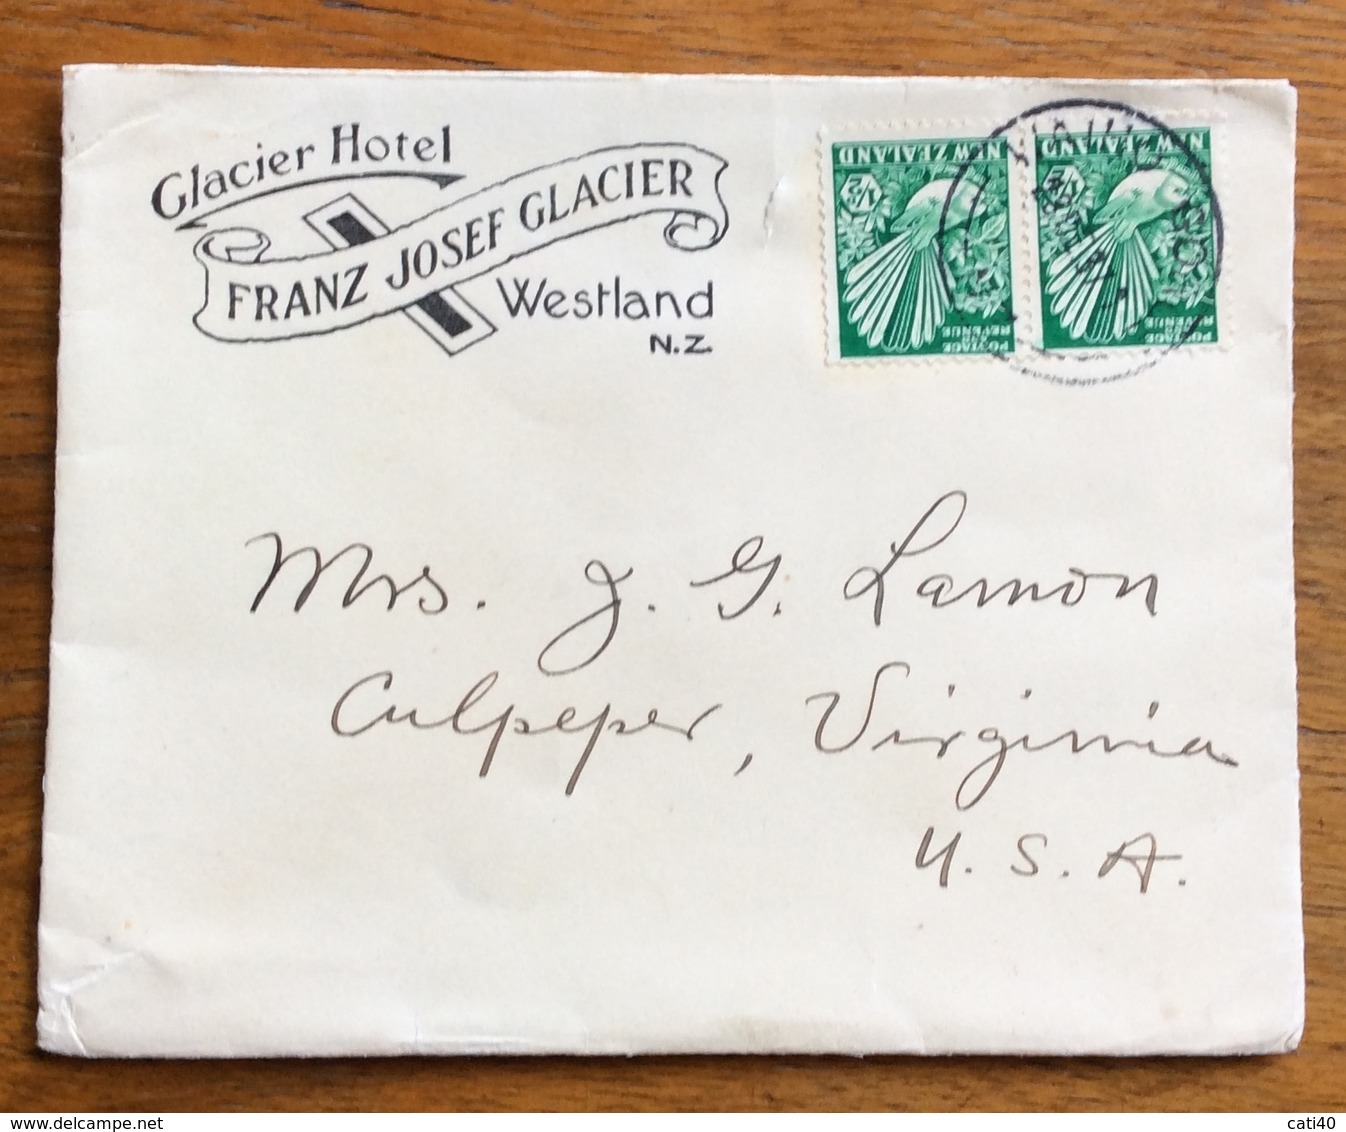 Glacier Hotel
FRANZ JOSEF GLACIER
Westland
N.Z.
NEW ZEALAND
½D
POSTAGE
AND
REVENUE
NEW ZEALAND
½D
POSTAGE
AND
REVENUE
Mrs. J. G. Lamon
Culpeper, Virginia
U. S. A.
delcampe.net
cati40